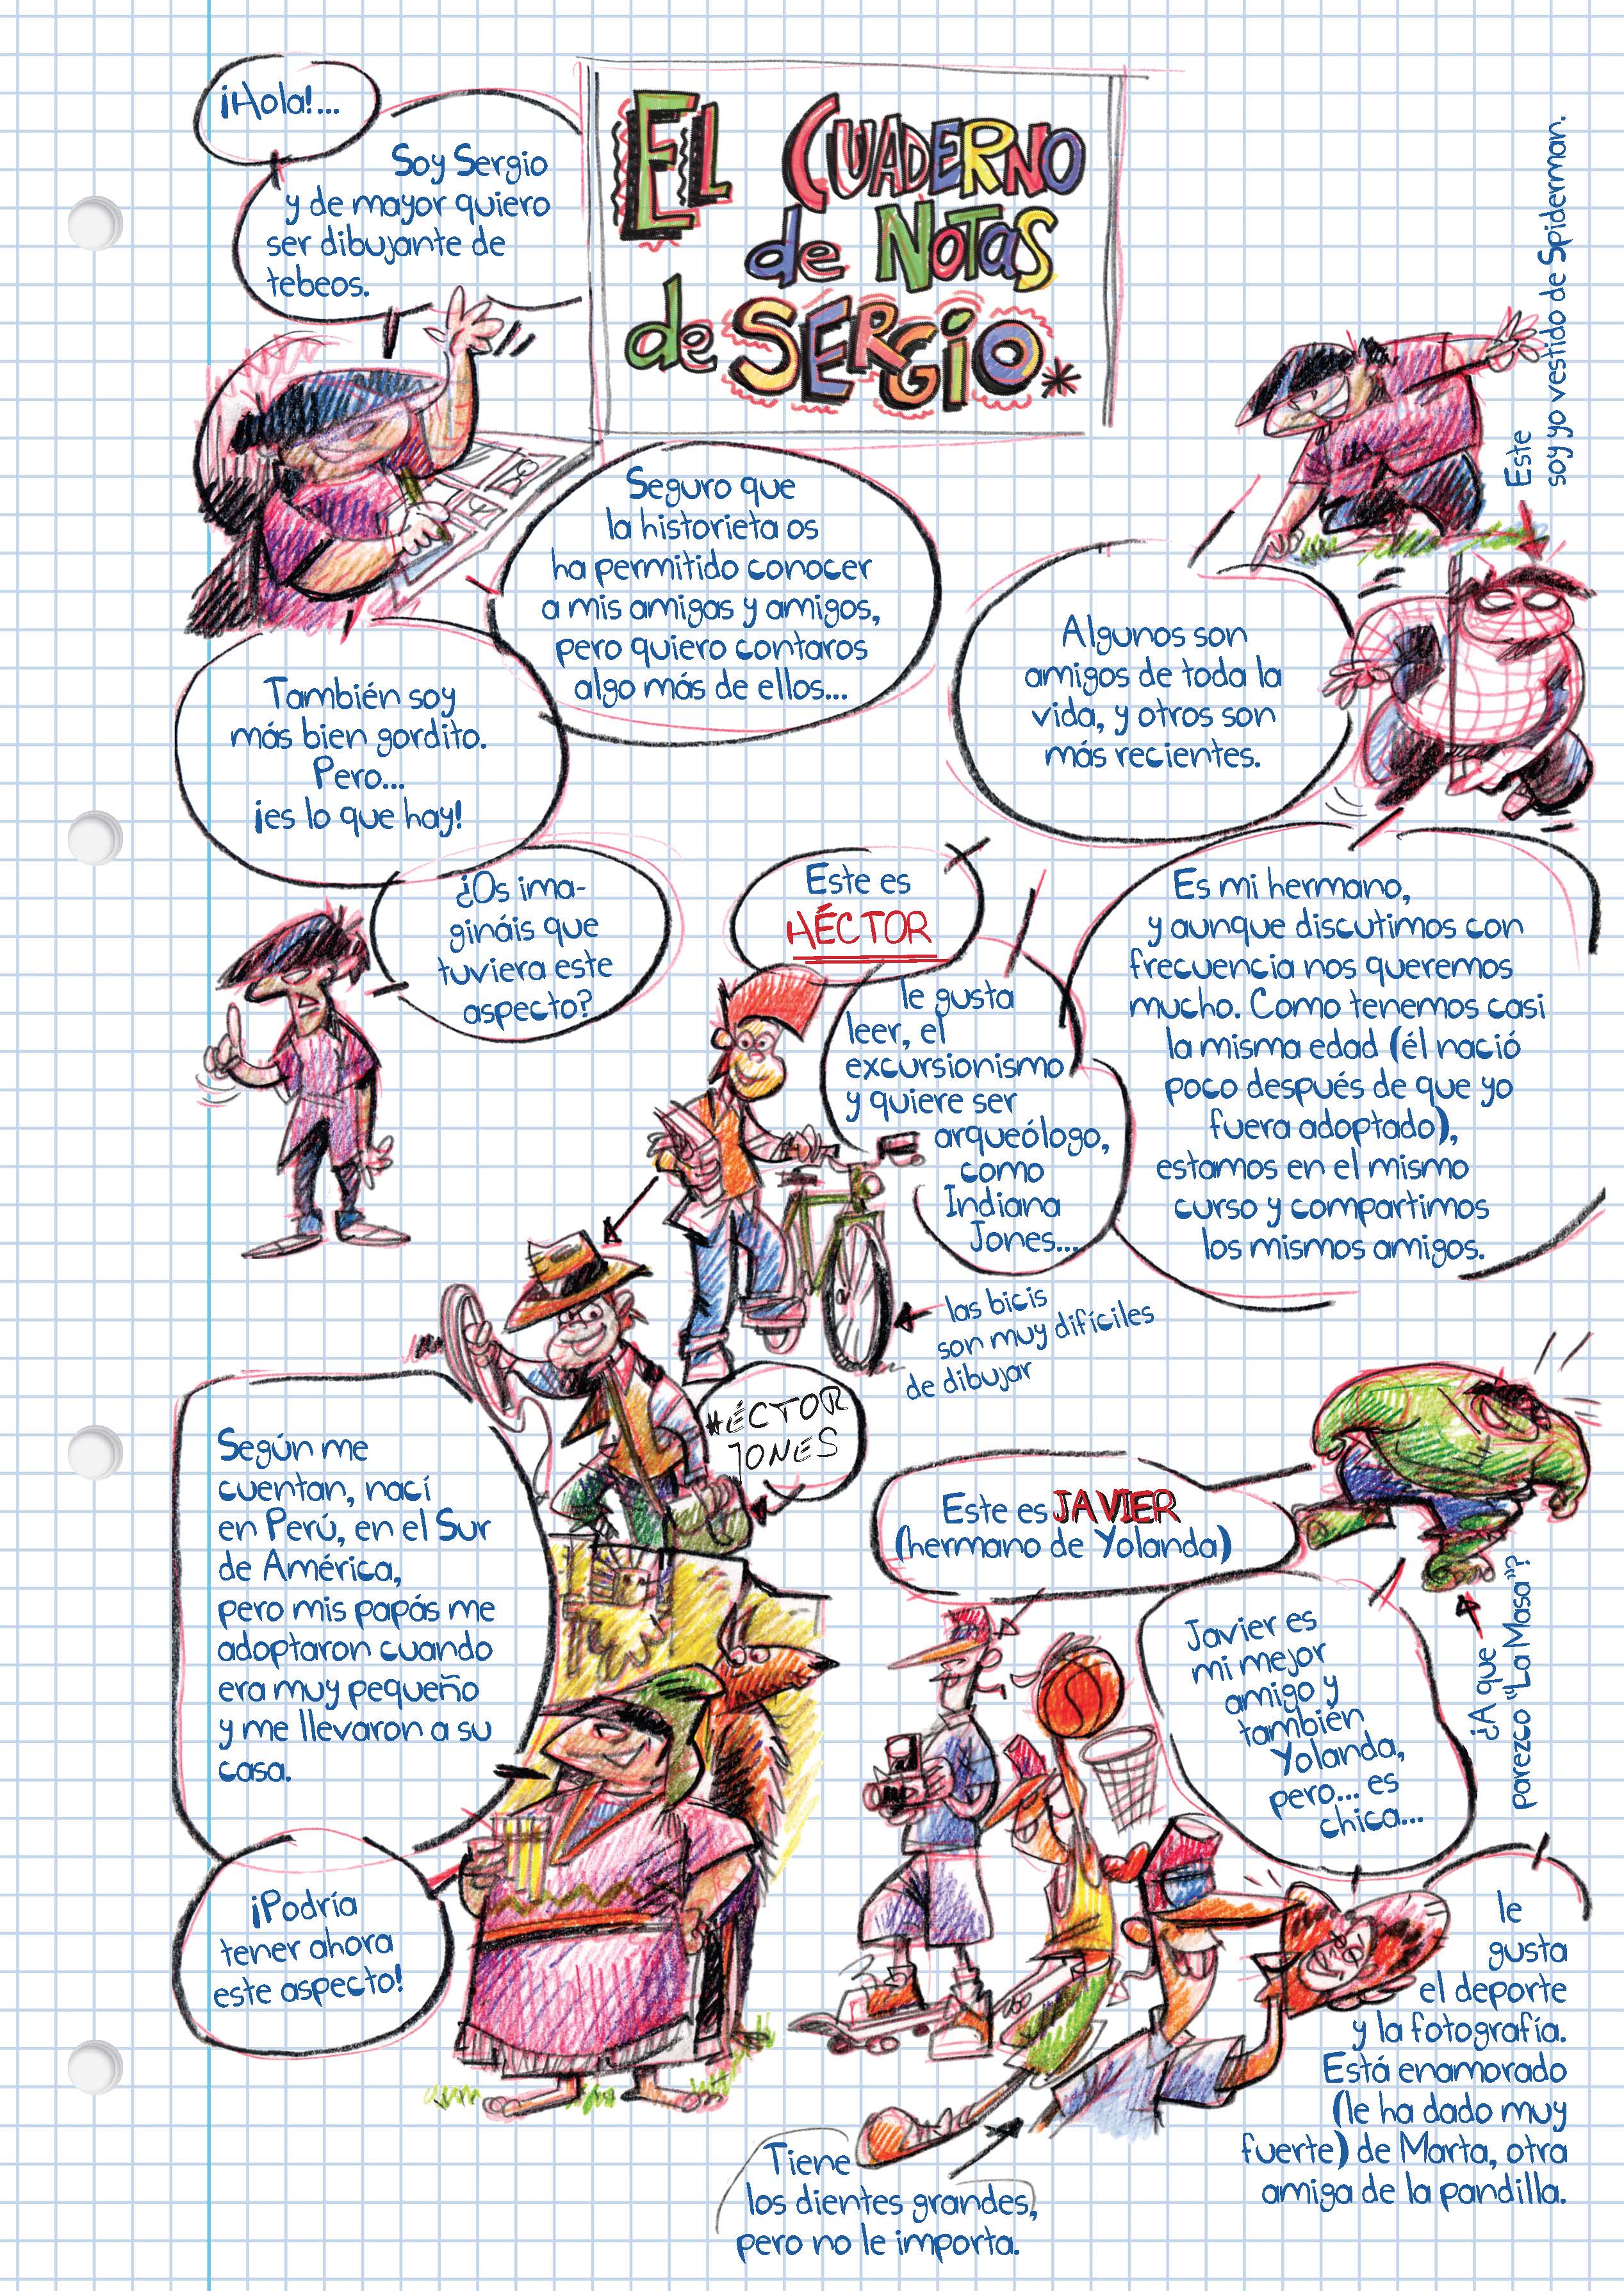 ¡Hola!...
Soy Sergio
y de mayor quiero
ser dibujante de
tebeos.
EL CUADERNO
de NOTAS
de SERGIO*
Este
soy yo vestido de Spiderman.
Seguro que
la historieta os
ha permitido conocer
a mis amigas y amigos,
pero quiero contaros
algo más de ellos...
Algunos son
amigos de toda la
vida, y otros son
más recientes.
También soy
más bien gordito.
Pero...
¡es lo que hay!
¿Os ima-
gináis que
tuviera este
aspecto?
Este es
HÉCTOR
le gusta
leer, el
excursionismo
y quiere ser
arqueólogo,
como
Indiana
Jones...
Es mi hermano,
y aunque discutimos con
frecuencia nos queremos
mucho. Como tenemos casi
la misma edad (él nació
poco después de que yo
fuera adoptado),
estamos en el mismo
curso y compartimos
los mismos amigos.
las bicis
son muy difíciles
de dibujar
HÉCTOR
JONES
Según me
cuentan, nací
en Perú, en el Sur
de América,
pero mis papás me
adoptaron cuando
era muy pequeño
y me llevaron a su
casa.
¡Podría
tener ahora
este aspecto!
Este es JAVIER
(hermano de Yolanda)
¿A que
parezco "La Masa"?
Javier es
mi mejor
amigo y
también
Yolanda,
pero... es
chica...
le
gusta
el deporte
y la fotografía.
Está enamorado
(le ha dado muy
fuerte) de Marta, otra
amiga de la pandilla.
Tiene
los dientes grandes,
pero no le importa.